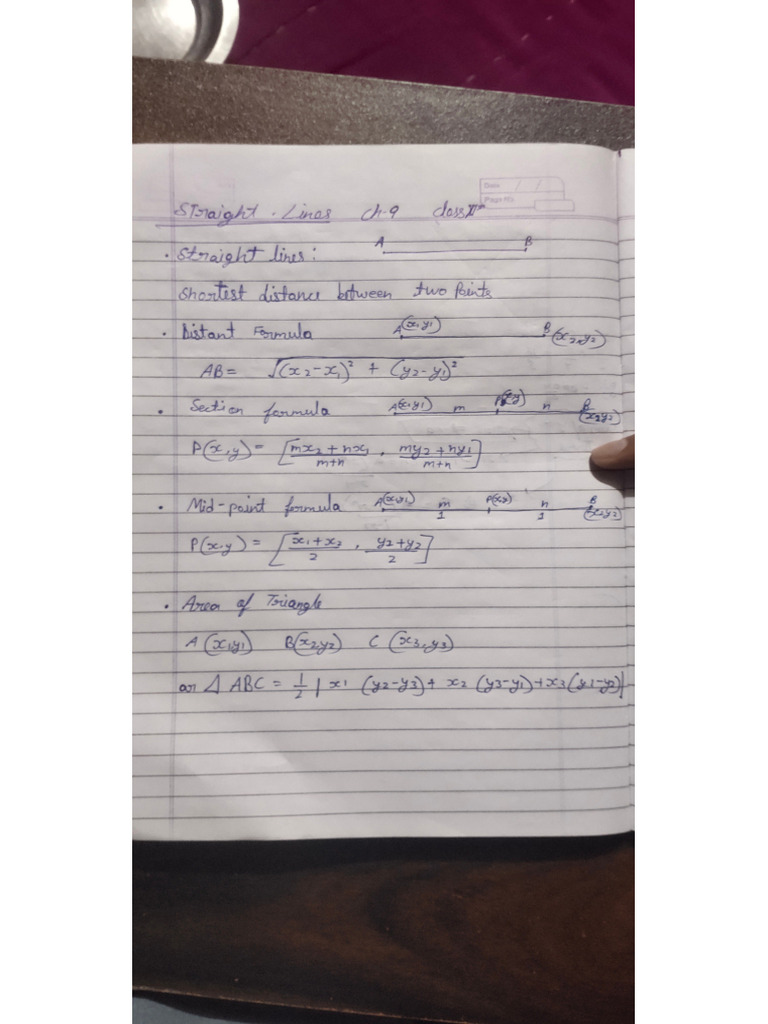 Date / /
Page No.
Straight Lines Ch-9 Class XIth
A B
• Straight lines:
Shortest distance between two Points
• Distant Formula A(x1y1) B(x2,y2)
AB = √(x2-x1)² + (y2-y1)²
• Section formula A(x1y1) m P(x,y) n B(x2y2)
P(x,y) = [mx2+nx1/m+n , my2+ny1/m+n]
• Mid-point formula A(x1y1) m 1 P(x,y) n 1 B(x2y2)
P(x,y) = [x1+x2/2 , y2+y2/2]
• Area of Triangle
A(x1y1) B(x2,y2) C(x3,y3)
ar △ ABC = 1/2 | x1 (y2-y3) + x2 (y3-y1) + x3 (y1-y2)|